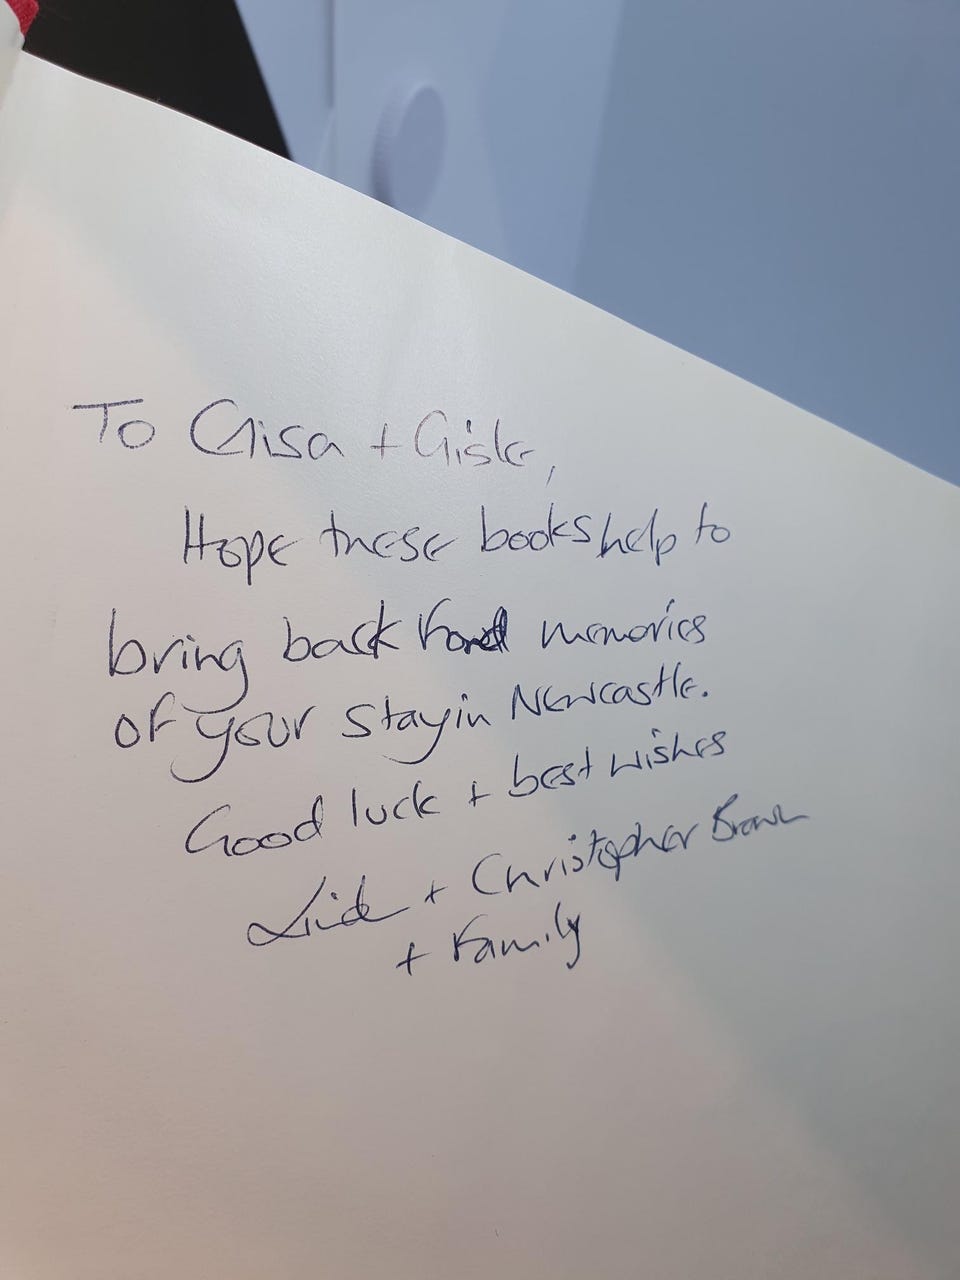 To Gisa + Gisle,
Hope these books help to
bring back fond memories
of your stay in Newcastle.
Good luck + best wishes
+ Christopher Brown
+ Family